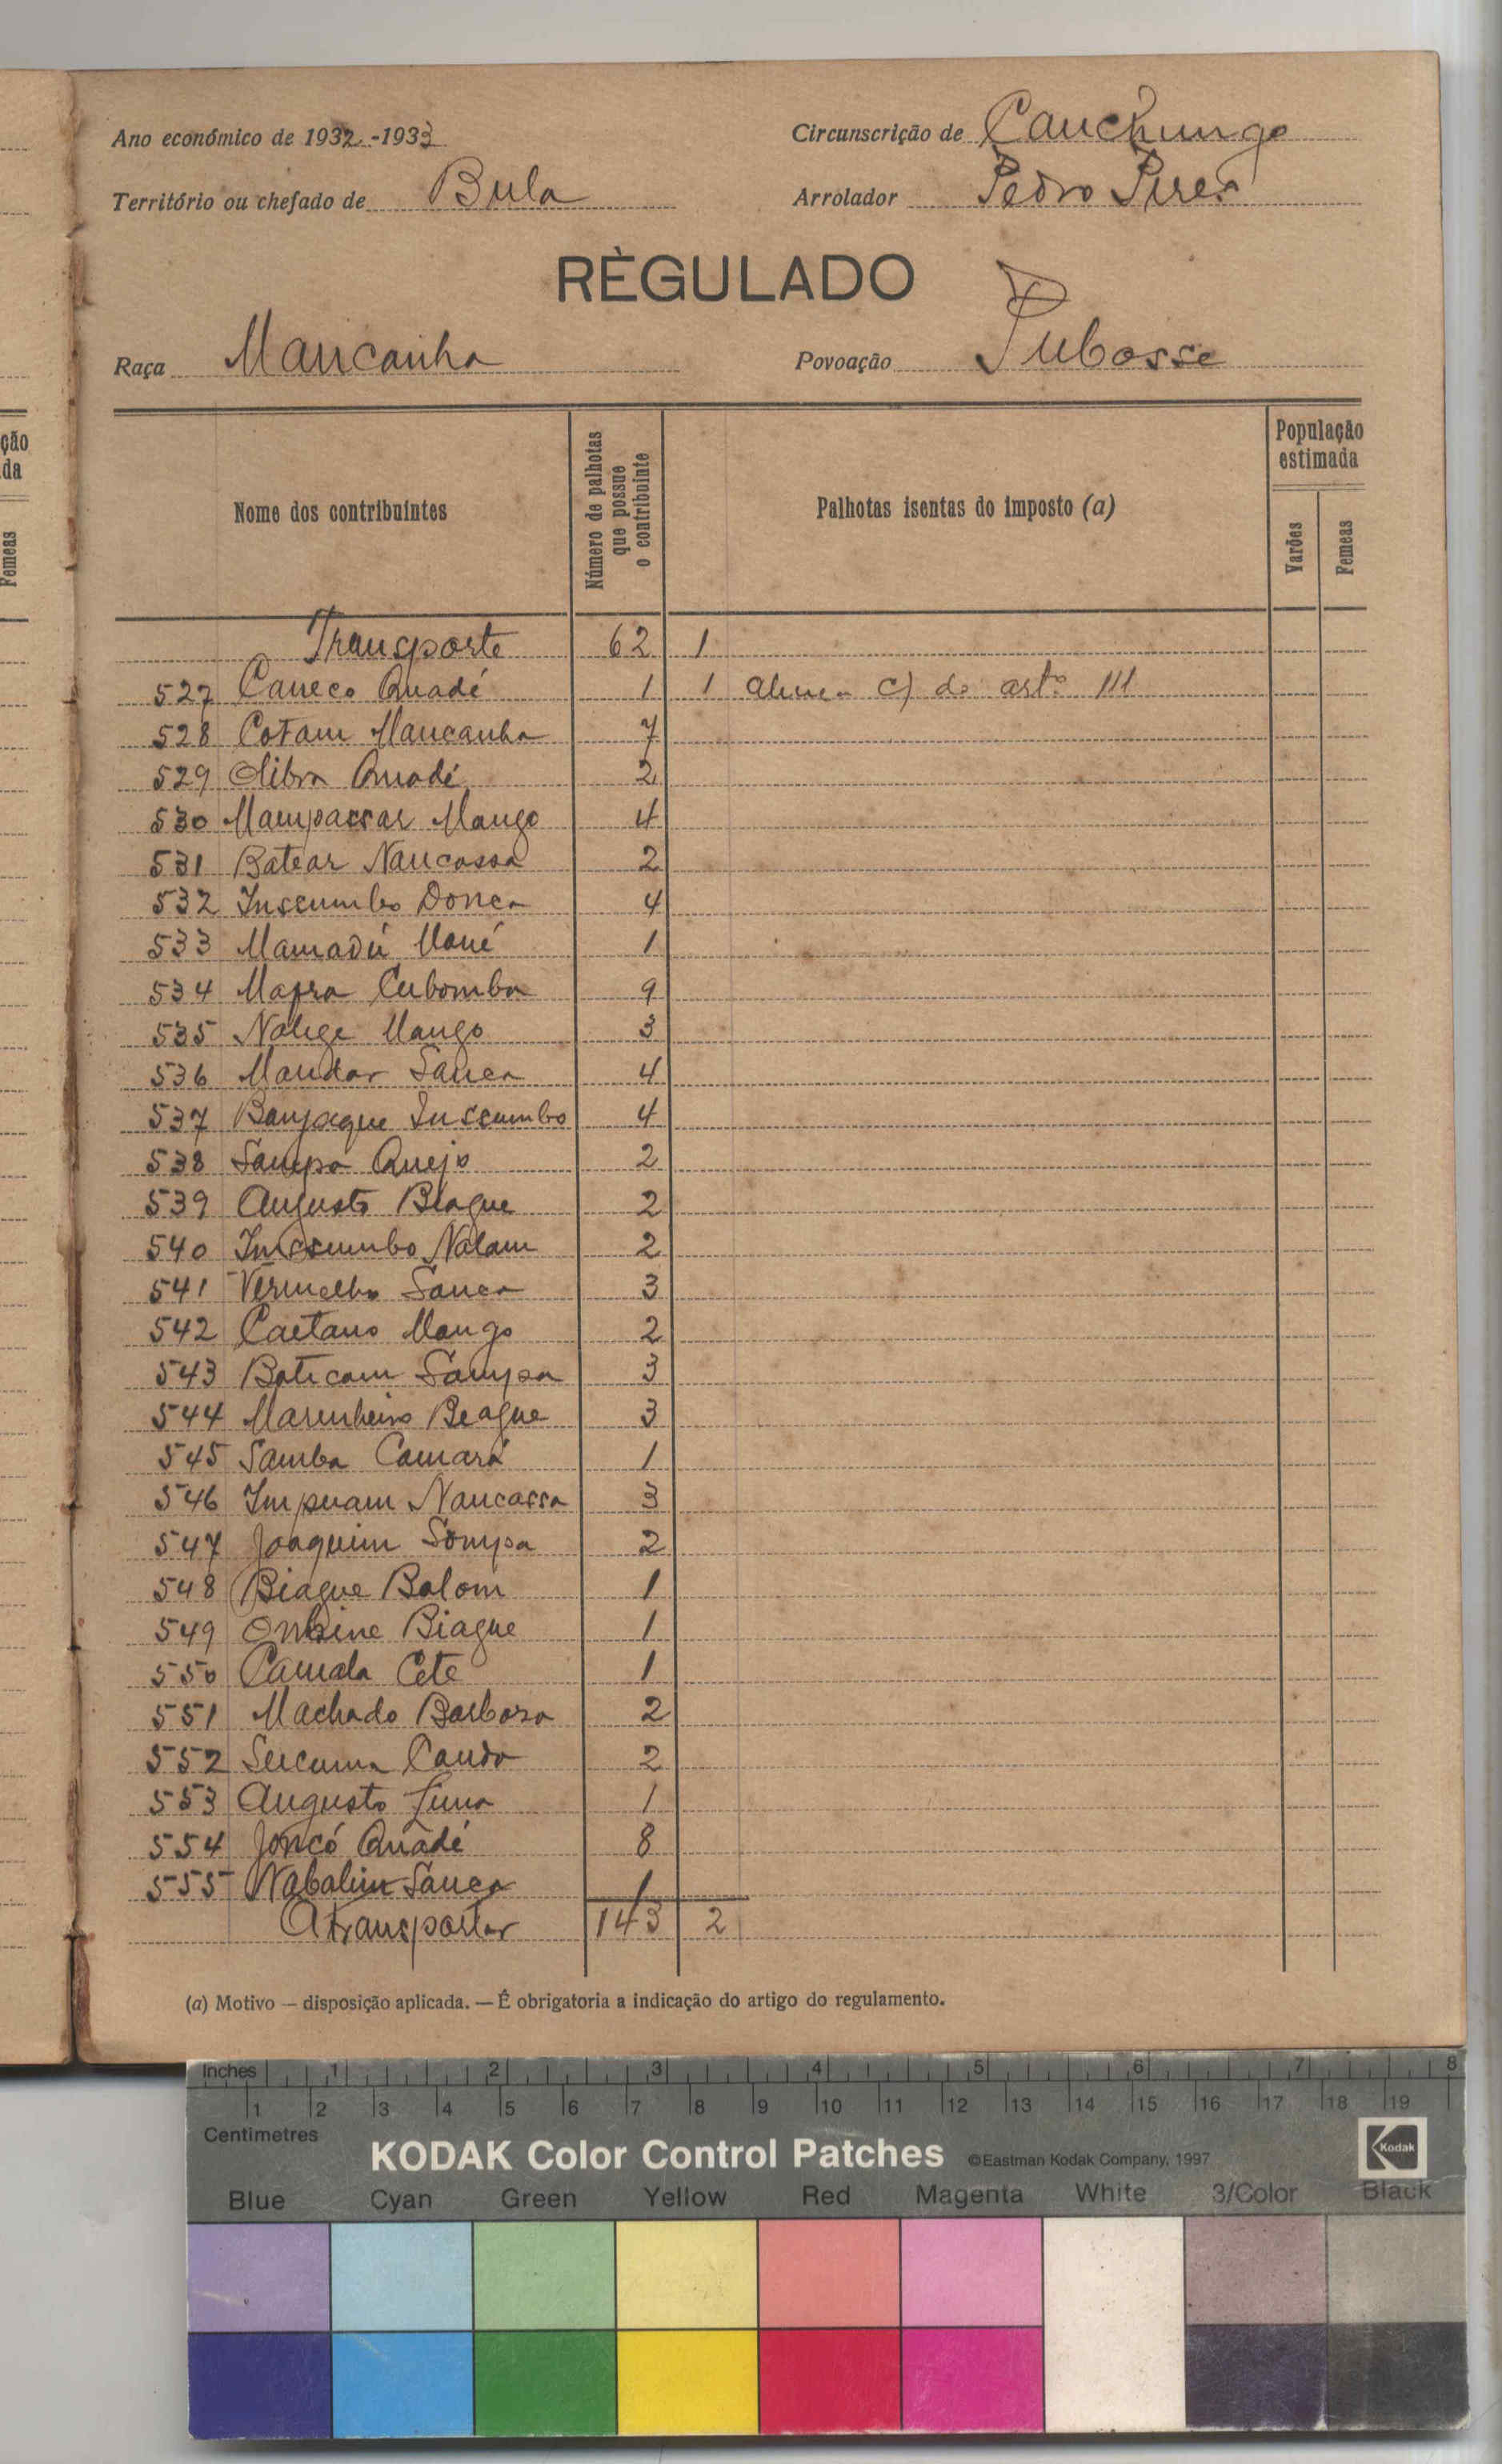 Ano económico de 1932-1933
Circunscrição de Canchungo
Território ou chefado de Bula
Arrolador Pedro Pires
RÈGULADO
Raça Mancanha
Povoação Pubosse
ção
da
Femeas
Nome dos contribuíntes
Número de palhotas que possue o contribuinte
Palhotas isentas do imposto (a)
População estimada
Varões
Femeas
Transporte 62 1
527 Caneco Quadé 1 1 alinea c) do artº 111
528 Cotam Mancanha 7
529 Olibra Quadé 2
530 Mampassar Mango 4
531 Batear Nancassa 2
532 Inscumbo Donca 4
533 Mamadú Mané 1
534 Mapra Cubomba 9
535 Nalige Mango 3
536 Mandar Sanca 4
537 Banjaque Inscumbo 4
538 Sampa Quejo 2
539 Augusto Biague 2
540 Inscumbo Nalam 2
541 Vermelho Sanca 3
542 Caetano Mango 2
543 Baticam Sampa 3
544 Marinheiro Beague 3
545 Samba Camará 1
546 Impuam Nancassa 3
547 Joaquim Sampa 2
548 Biague Balom 1
549 Biague 1
550 Camala Cete 1
551 Machado Barbosa 2
552 Sucuma Cando 2
553 Augusto 1
554 Joncó Quadé 8
555 Nabalim Sanca 1
A transportar 143 2
(a) Motivo — disposição aplicada. — É obrigatoria a indicação do artigo do regulamento.
Inches 1 2 3 4 5 6 7 8
1 2 3 4 5 6 7 8 9 10 11 12 13 14 15 16 17 18 19
Centimetres
KODAK Color Control Patches ©Eastman Kodak Company, 1997 Kodak
Blue Cyan Green Yellow Red Magenta White 3/Color Black